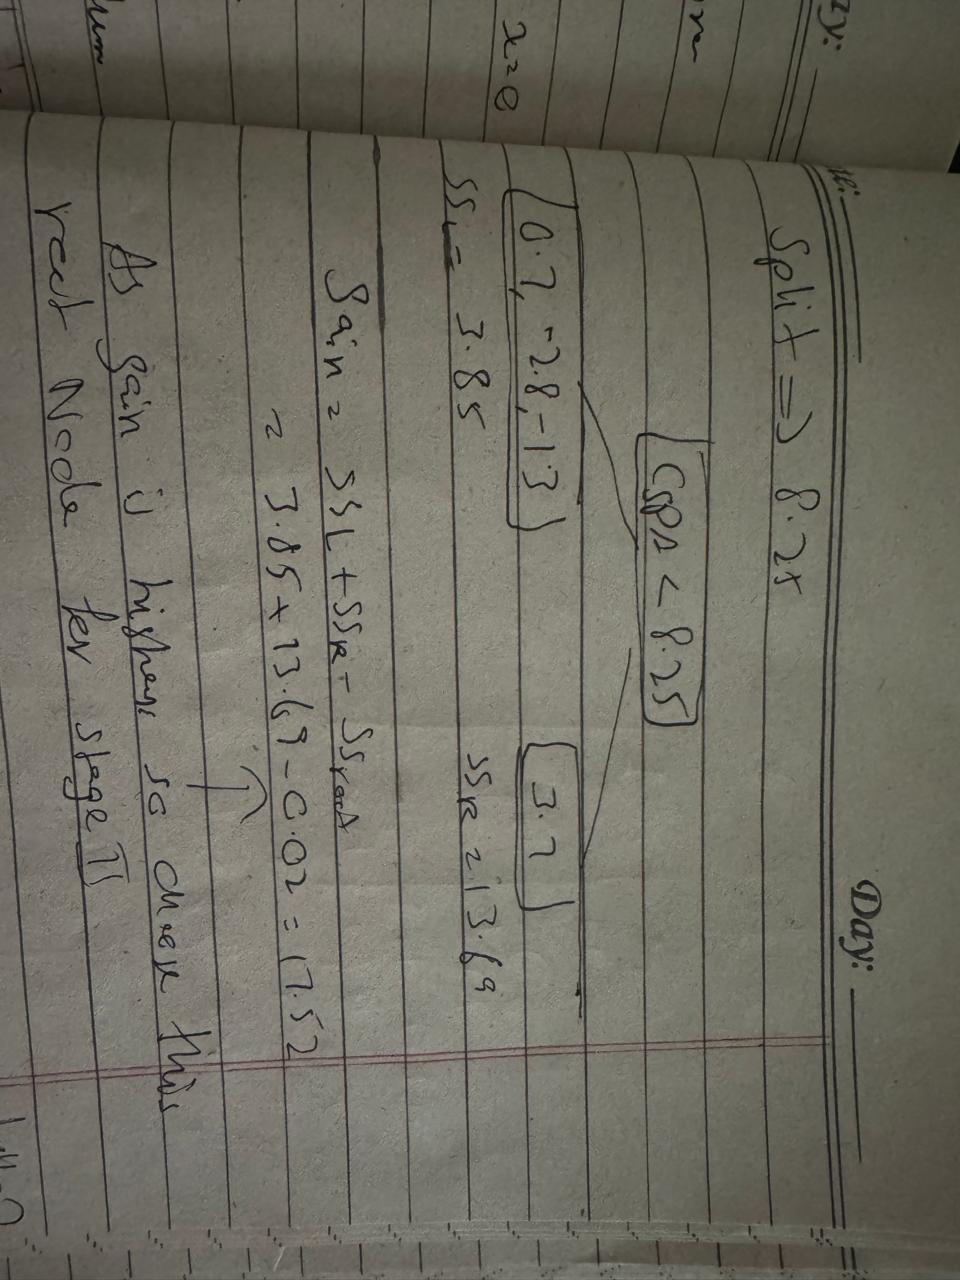 Day:
Split => 8.25
CGPA < 8.25
0.7, -2.8, -1.3
3.7
SSL = 3.85
SSR = 13.69
Gain = SSL + SSR - SSroot
= 3.85 + 13.69 - 0.02 = 17.52
↑
As gain is highest so choose this
root Node for stage II
x = 0